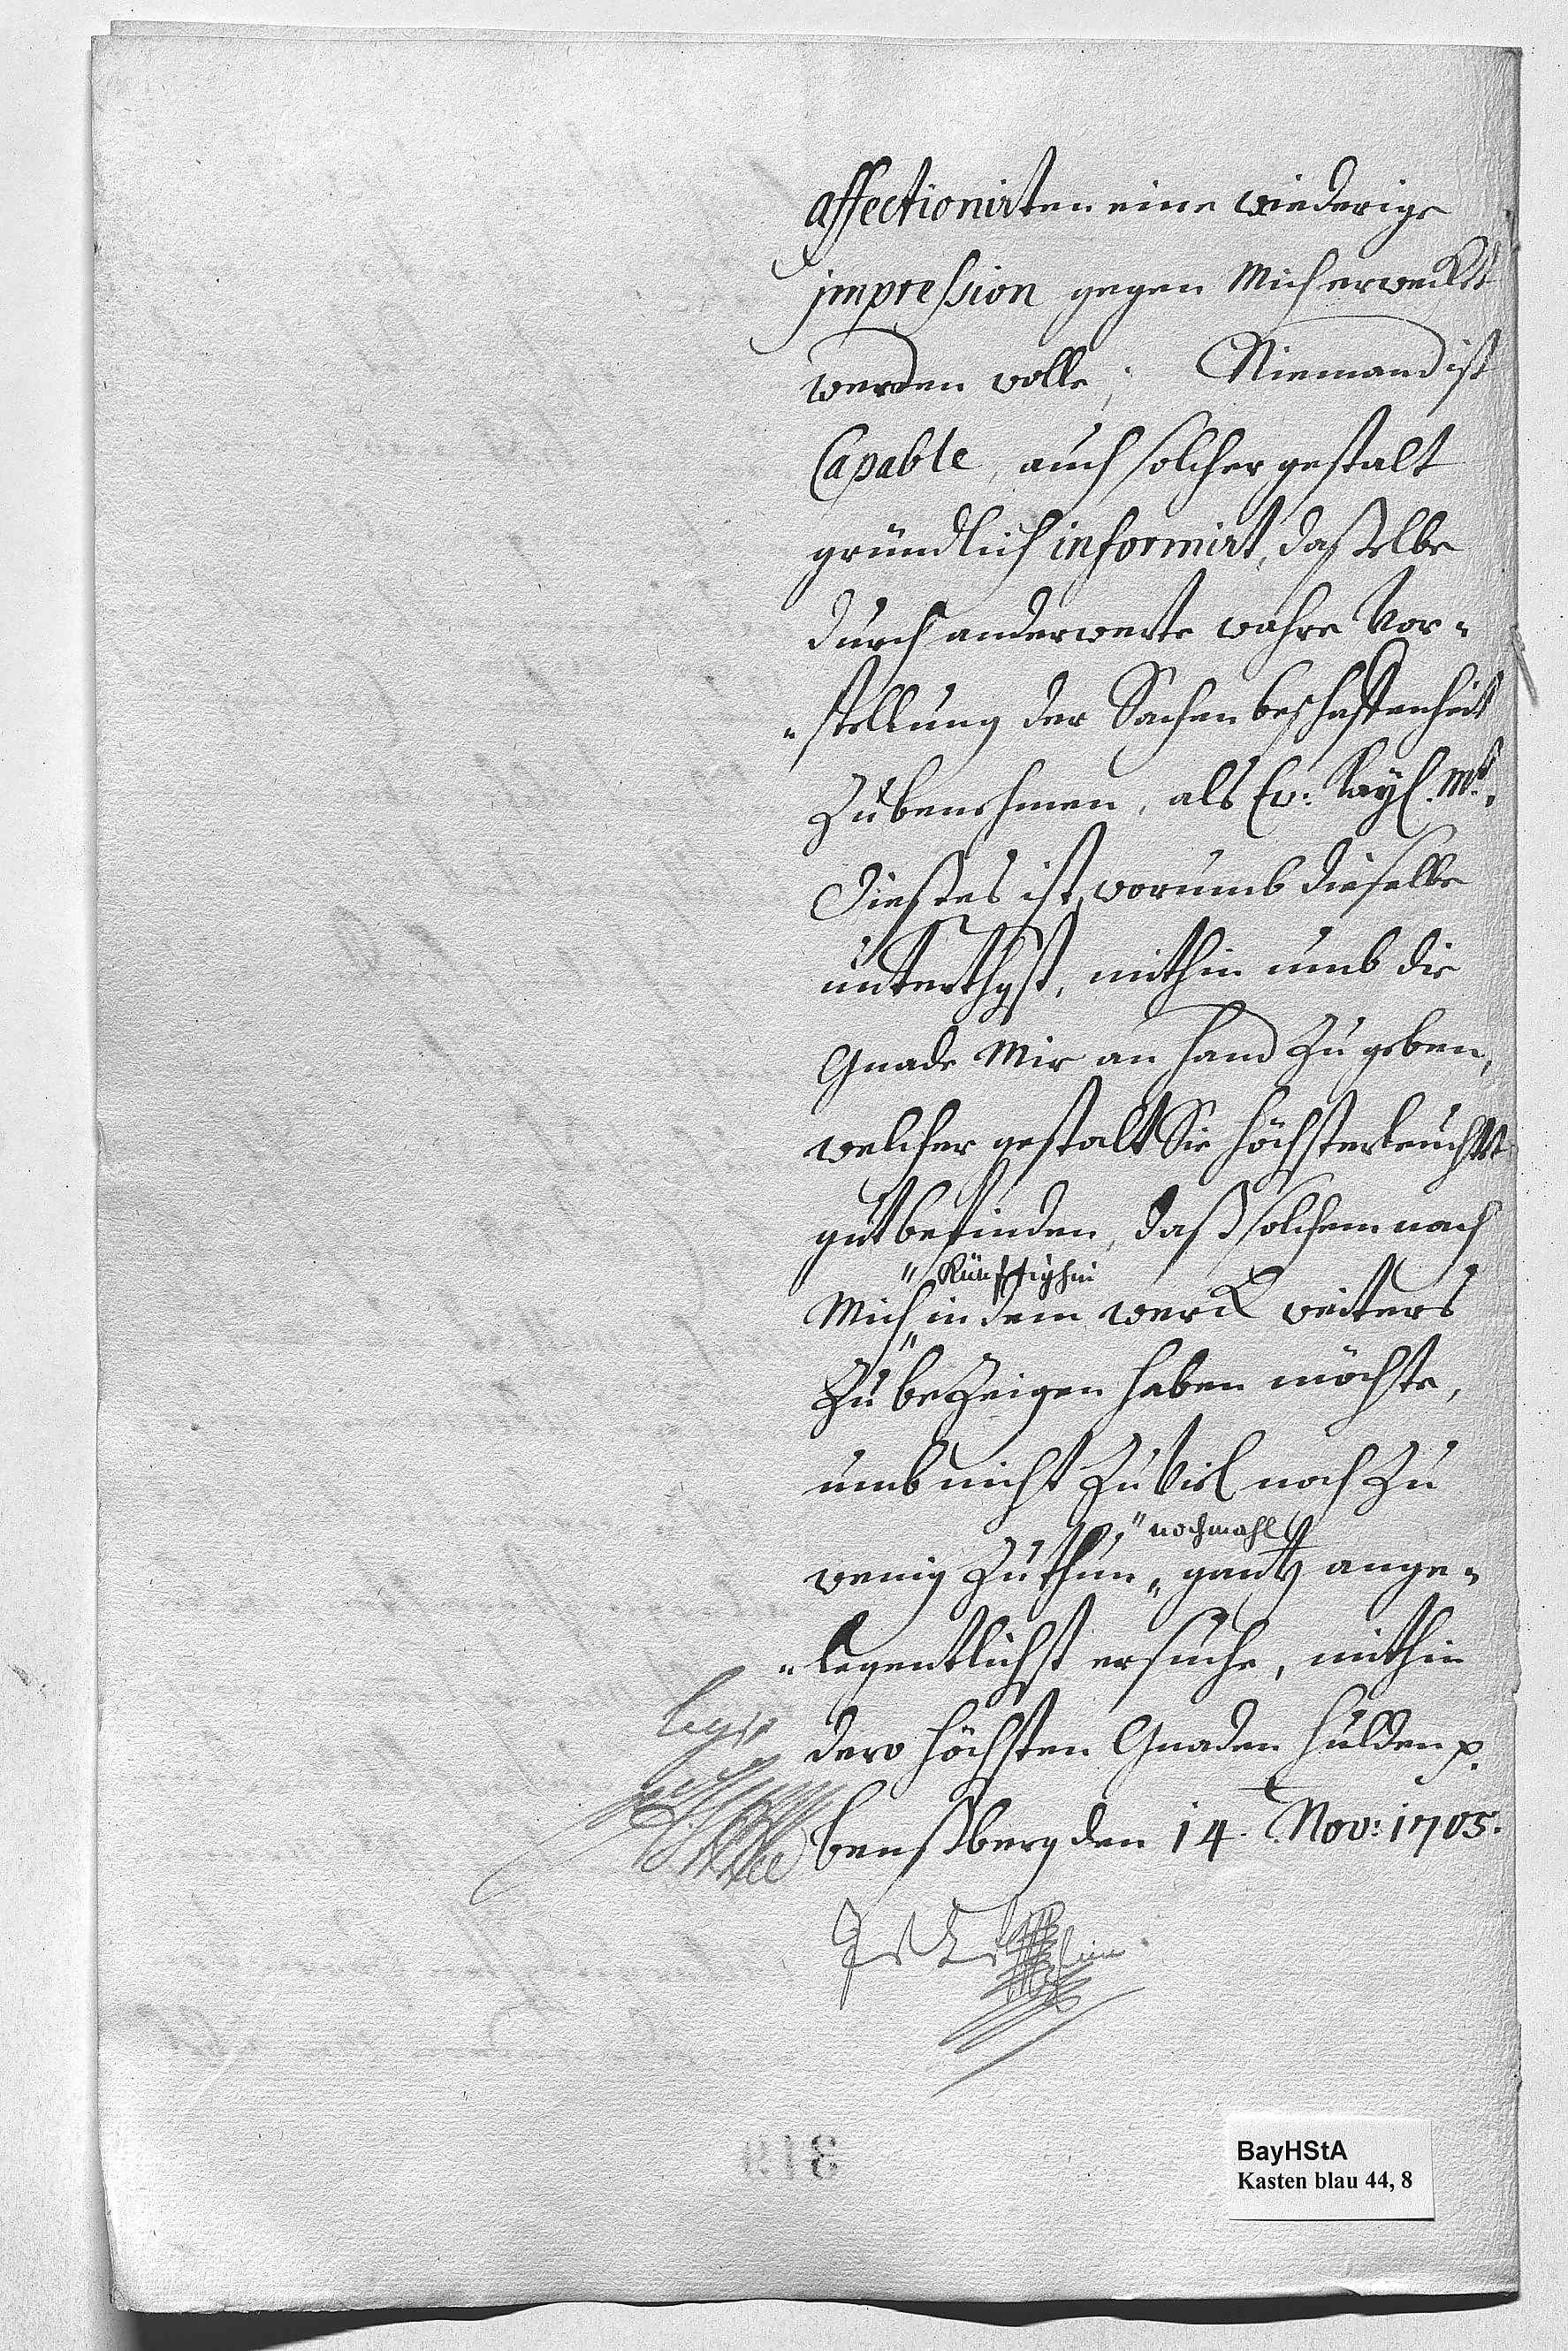 affectionirten eine wiederige
impression gegen Mich erweckt
werden wolle; Niemand ist
Capable, auch solcher gestalt
gründlich informirt, daßelbe
durch anderwerte wahre Vor-
-stellung der Sachen beschaffenheit
Zubenehmen, als Ew: Kayl. Mt.
Dießes ist, worumb dieselbe
unterthgst, mithin umb die
Gnade Mir an hand Zu geben,
welcher gestalt Sie höchsterleucht
gut befinden, daß solchem nach
" Künfftighin
Mich " in dem werck weiters
Zu beZeigen haben möchte,
umb nicht Zu viel noch Zu
" nochmahl
wenig Zu thun " gantz ange-
-legentlichst ersuche, mithin
dero höchsten Gnaden hulden p.
benßberg den 14. Nov: 1705.
legi
319
BayHStA
Kasten blau 44, 8